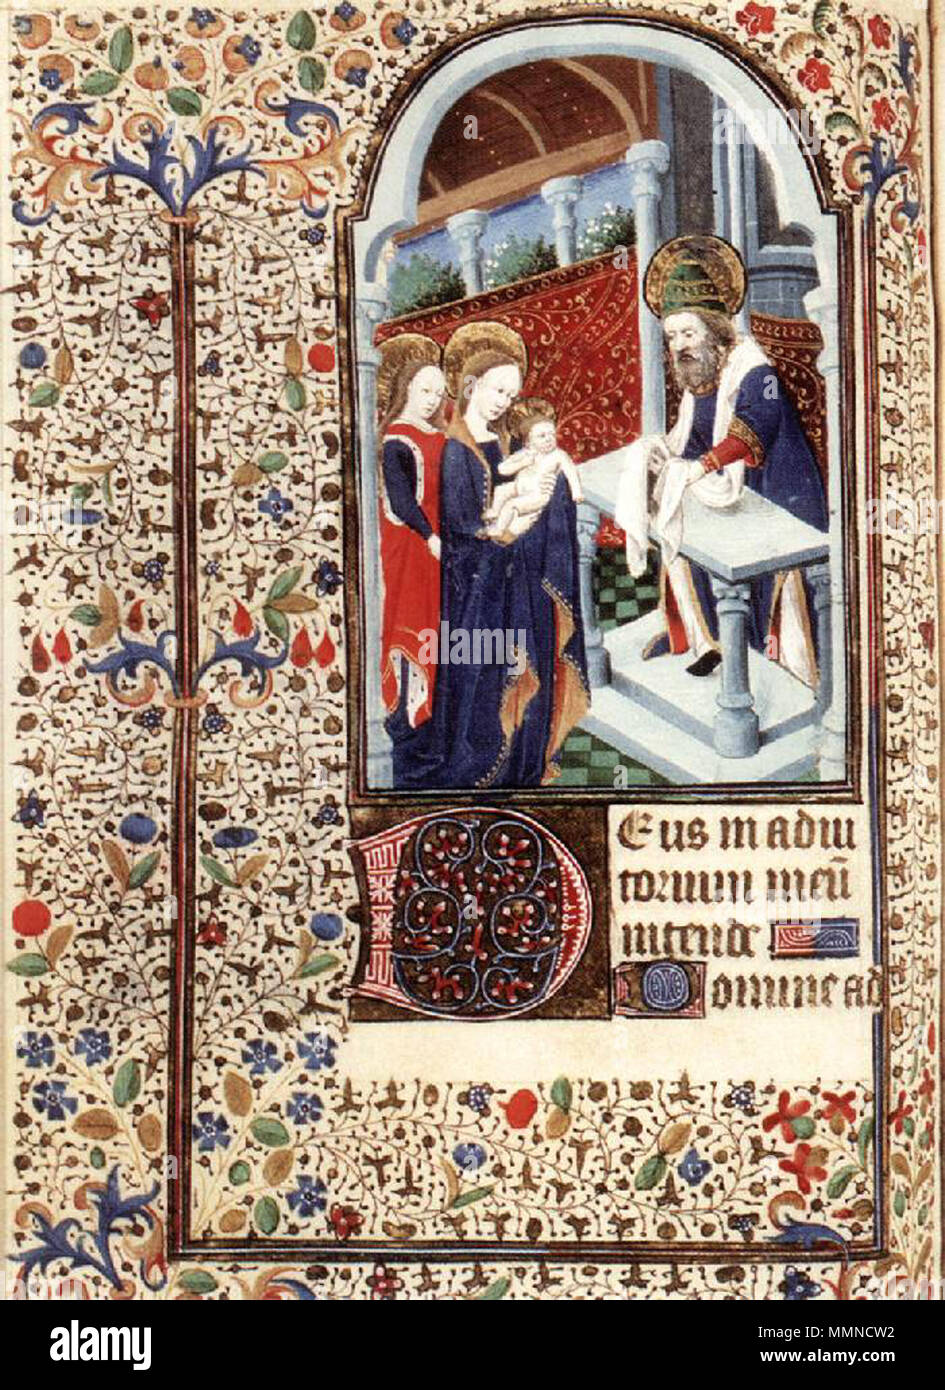 Deus in adiu
torium meū
intende
Domine ad
alamy
Image ID: MMNCW2
www.alamy.com